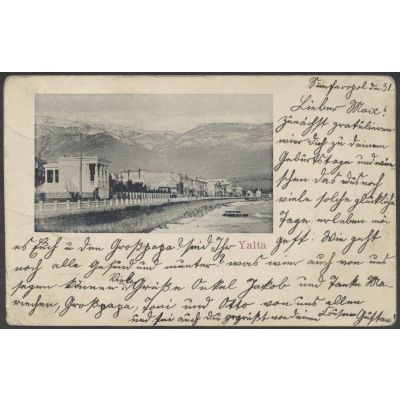 Simferopol den 31
Lieber Max!
Zunächst gratulieren
wir dich zu deinem
Geburtstage und wün
schen das du noch
viele solche glückliche
Tage erleben
Wie geht
es Euch u den Großpapa? seid Ihr
Yalta
noch alle Gesund und munter? was wir auch von uns
sagen können. Viele Grüße Onkel Jakob und Tante Ma
riechen, Großpapa, Toni und Otto von uns allen
und sei auch du gegrüßt von deinem Gustav